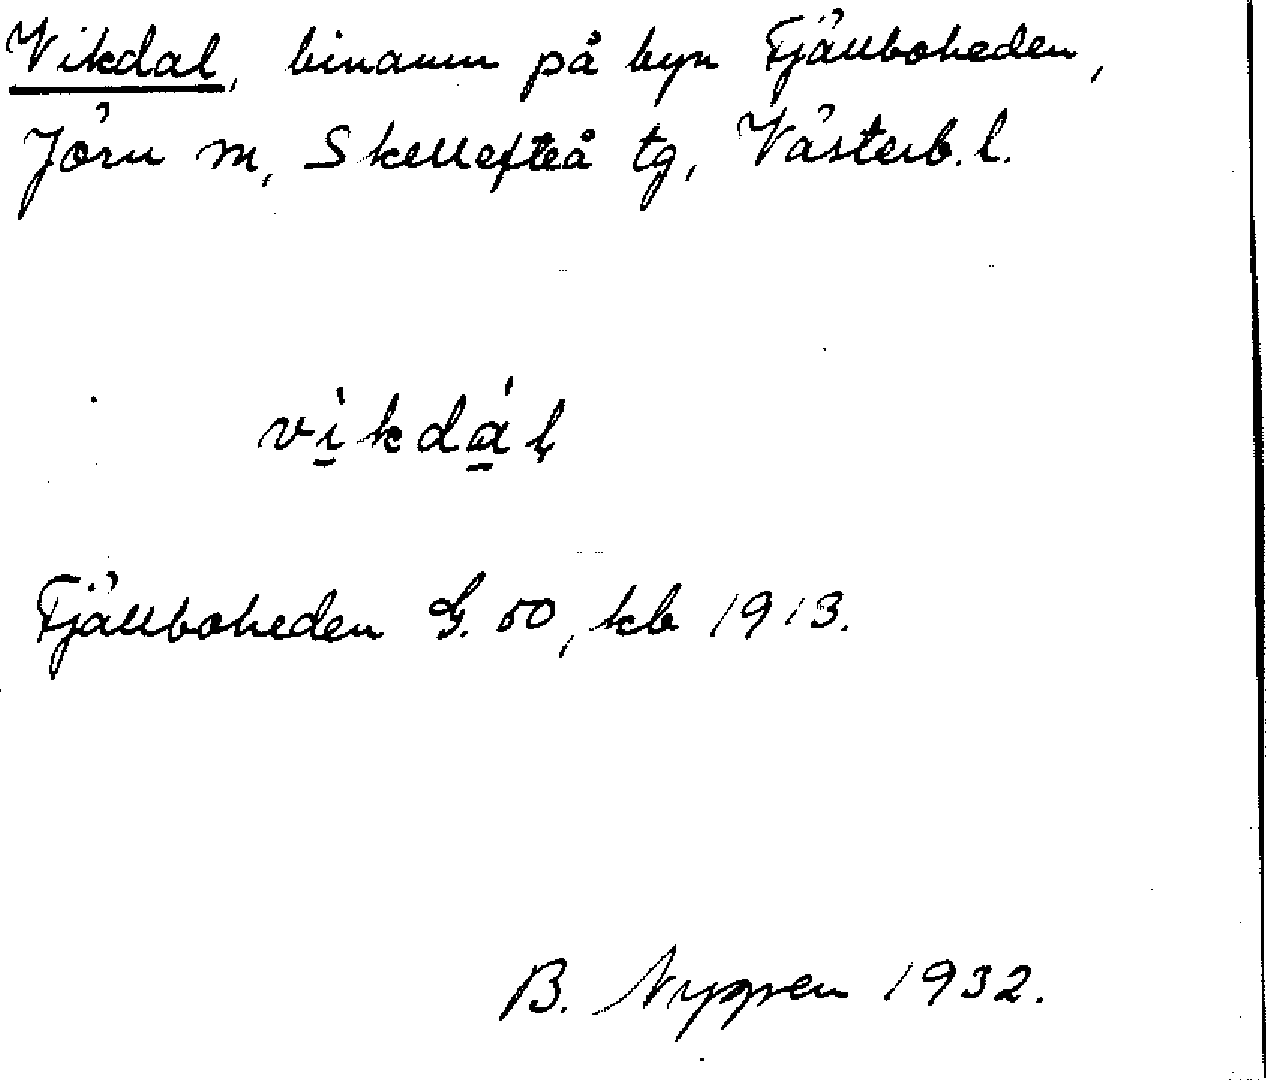 Vikdal, binamn på byn Fjällboheden,
Jörn sn, Skellefteå tg, Västerb. l.
vìkdáḷ
Fjällboheden G. 50, kb 1913.
B. Nygren 1932.